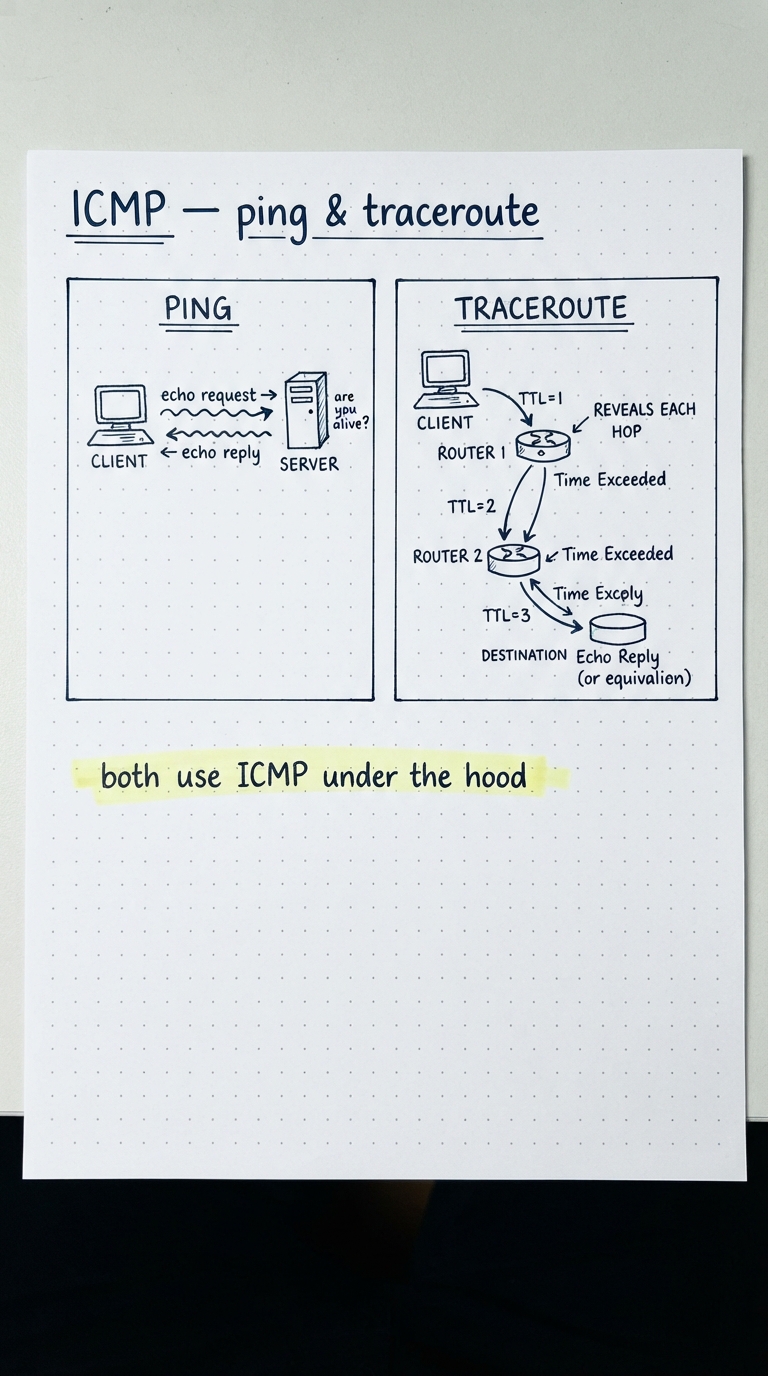 ICMP — ping & traceroute
PING
echo request →
are
you
alive?
← echo reply
CLIENT
SERVER
TRACEROUTE
CLIENT
TTL=1
REVEALS EACH
HOP
ROUTER 1
Time Exceeded
TTL=2
ROUTER 2
Time Exceeded
Time Excply
TTL=3
DESTINATION
Echo Reply
(or equivalion)
both use ICMP under the hood